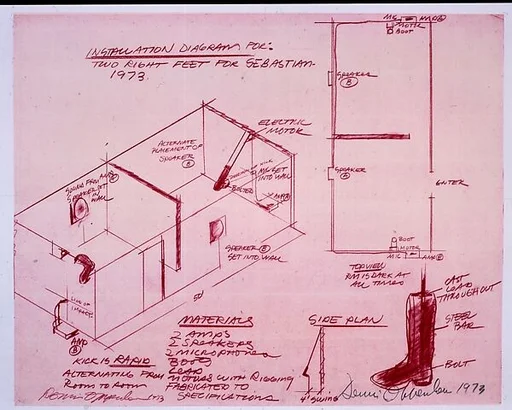 INSTALLATION DIAGRAM FOR:
TWO RIGHT FEET FOR SEBASTIAN
1973.
MIC
AMP
MOTOR
BOOT
SPEAKER
B
SPEAKER
A
ENTER
BOOT
MOTOR
MIC
AMP
TOP VIEW
RM IS DARK AT
ALL TIMES
ELECTRIC
MOTOR
ALTERNATE
PLACEMENT OF
SPEAKER
MIC SET
INTO WALL
BOLTED
AMP
SPEAKER B
SET INTO WALL
50'
LINE OF
IMPACT
AMP
B
KICK IS RAPID
ALTERNATING FROM
ROOM TO ROOM
MATERIALS
2 AMPS
2 SPEAKERS
2 MICROPHONES
BOOTS
LEAD
MOTORS WITH RIGGING
FABRICATED TO
SPECIFICATIONS
SIDE PLAN
4' SWING
CAST
LEAD
THROUGHOUT
STEEL
BAR
BOLT
Dennis Oppenheim 1973
Dennis Oppenheim 1973